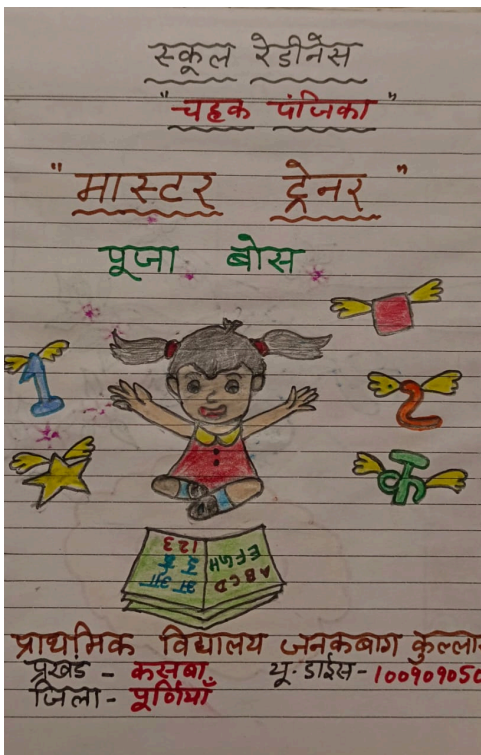 स्कूल रेडीनेस
"चहक पंजिका"
"मास्टर ट्रेनर"
पूजा बोस
1
2
क
1 2 3
इ ई
अ आ
E F G H
A B C D
प्राथमिक विद्यालय जनकबाग कुल्ला
प्रखंड - कसबा यू. डाईस - 100909050
जिला - पूर्णियाँ